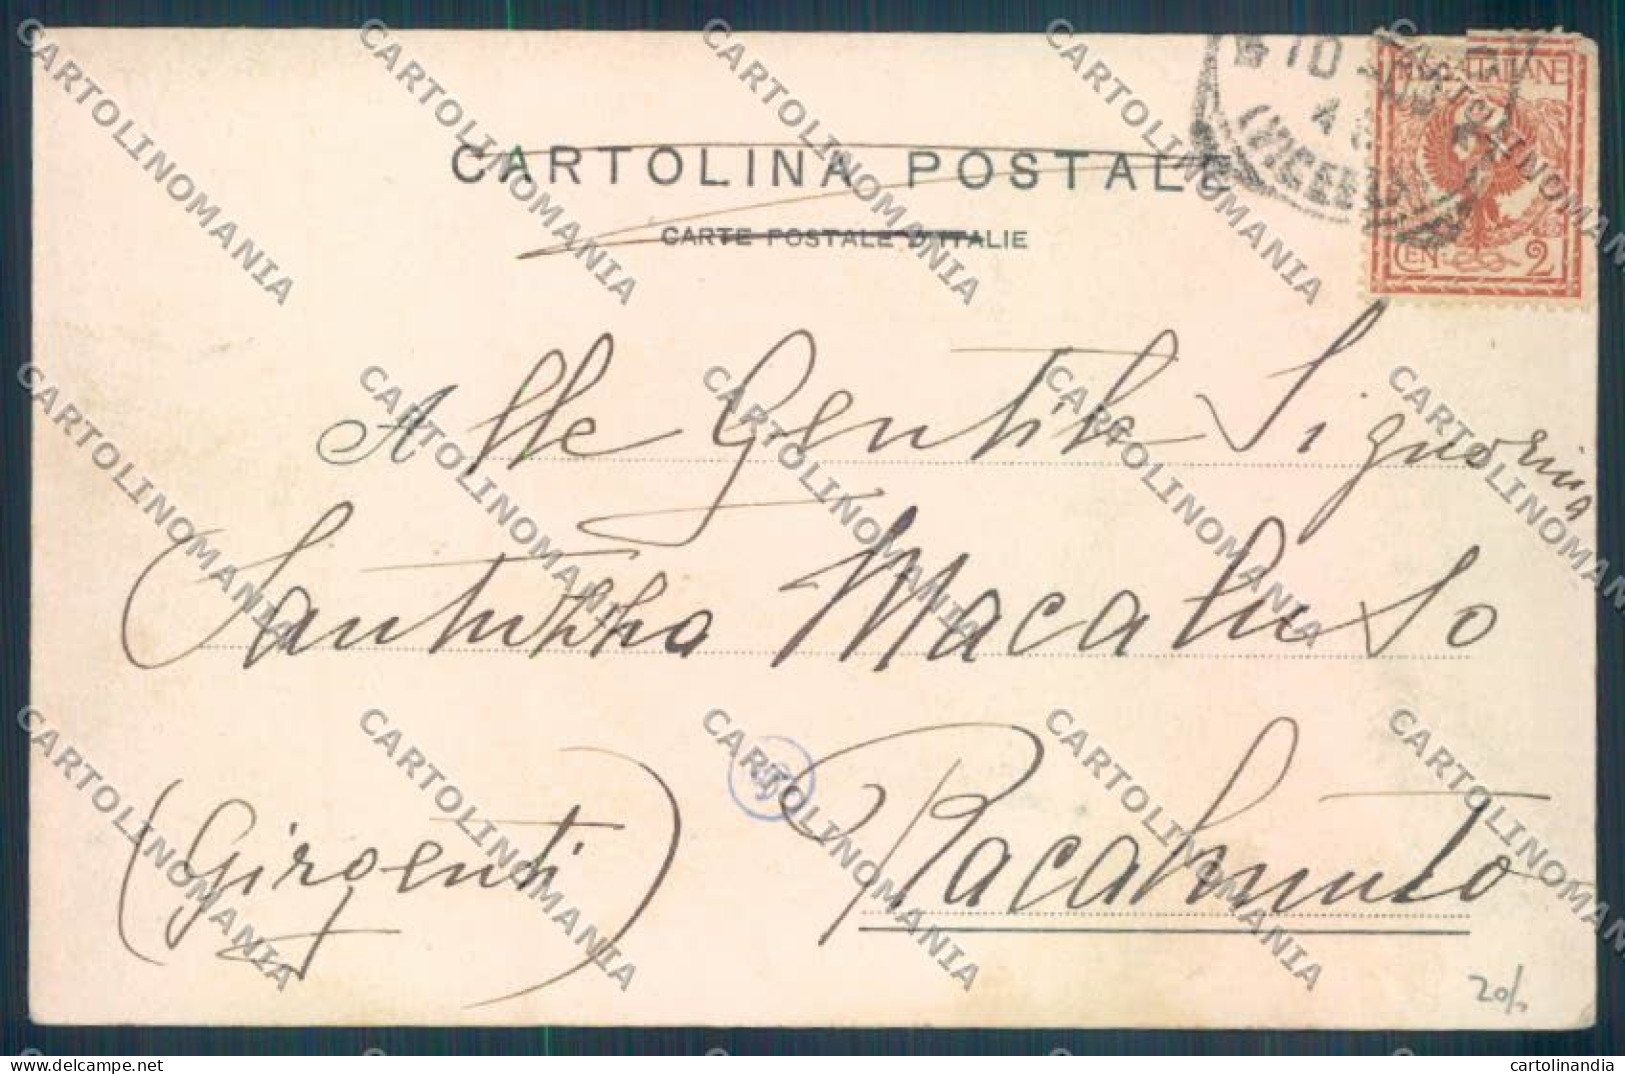 CARTOLINA POSTALE
CARTE POSTALE D'ITALIE
POSTE ITALIANE
CEN. 2
(VICENZA)
Alle Gentile Signorina
Macaluso
Racalmuto
(Girgenti)
20/.
CARTOLINOMANIA
cartolinandia